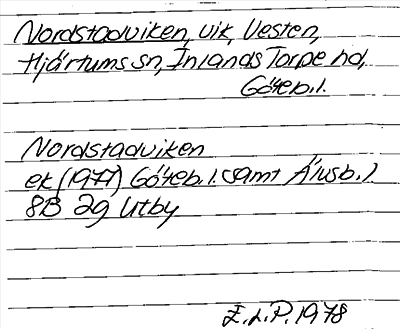 Nordstadviken, vik, Vesten,
Hjärtums sn, Inlands Torpe hd,
Göteb. l.
Nordstadviken
ek (1977) Göteb. l. (samt Älvsb.)
8B 2g Utby
E.L.P. 1978